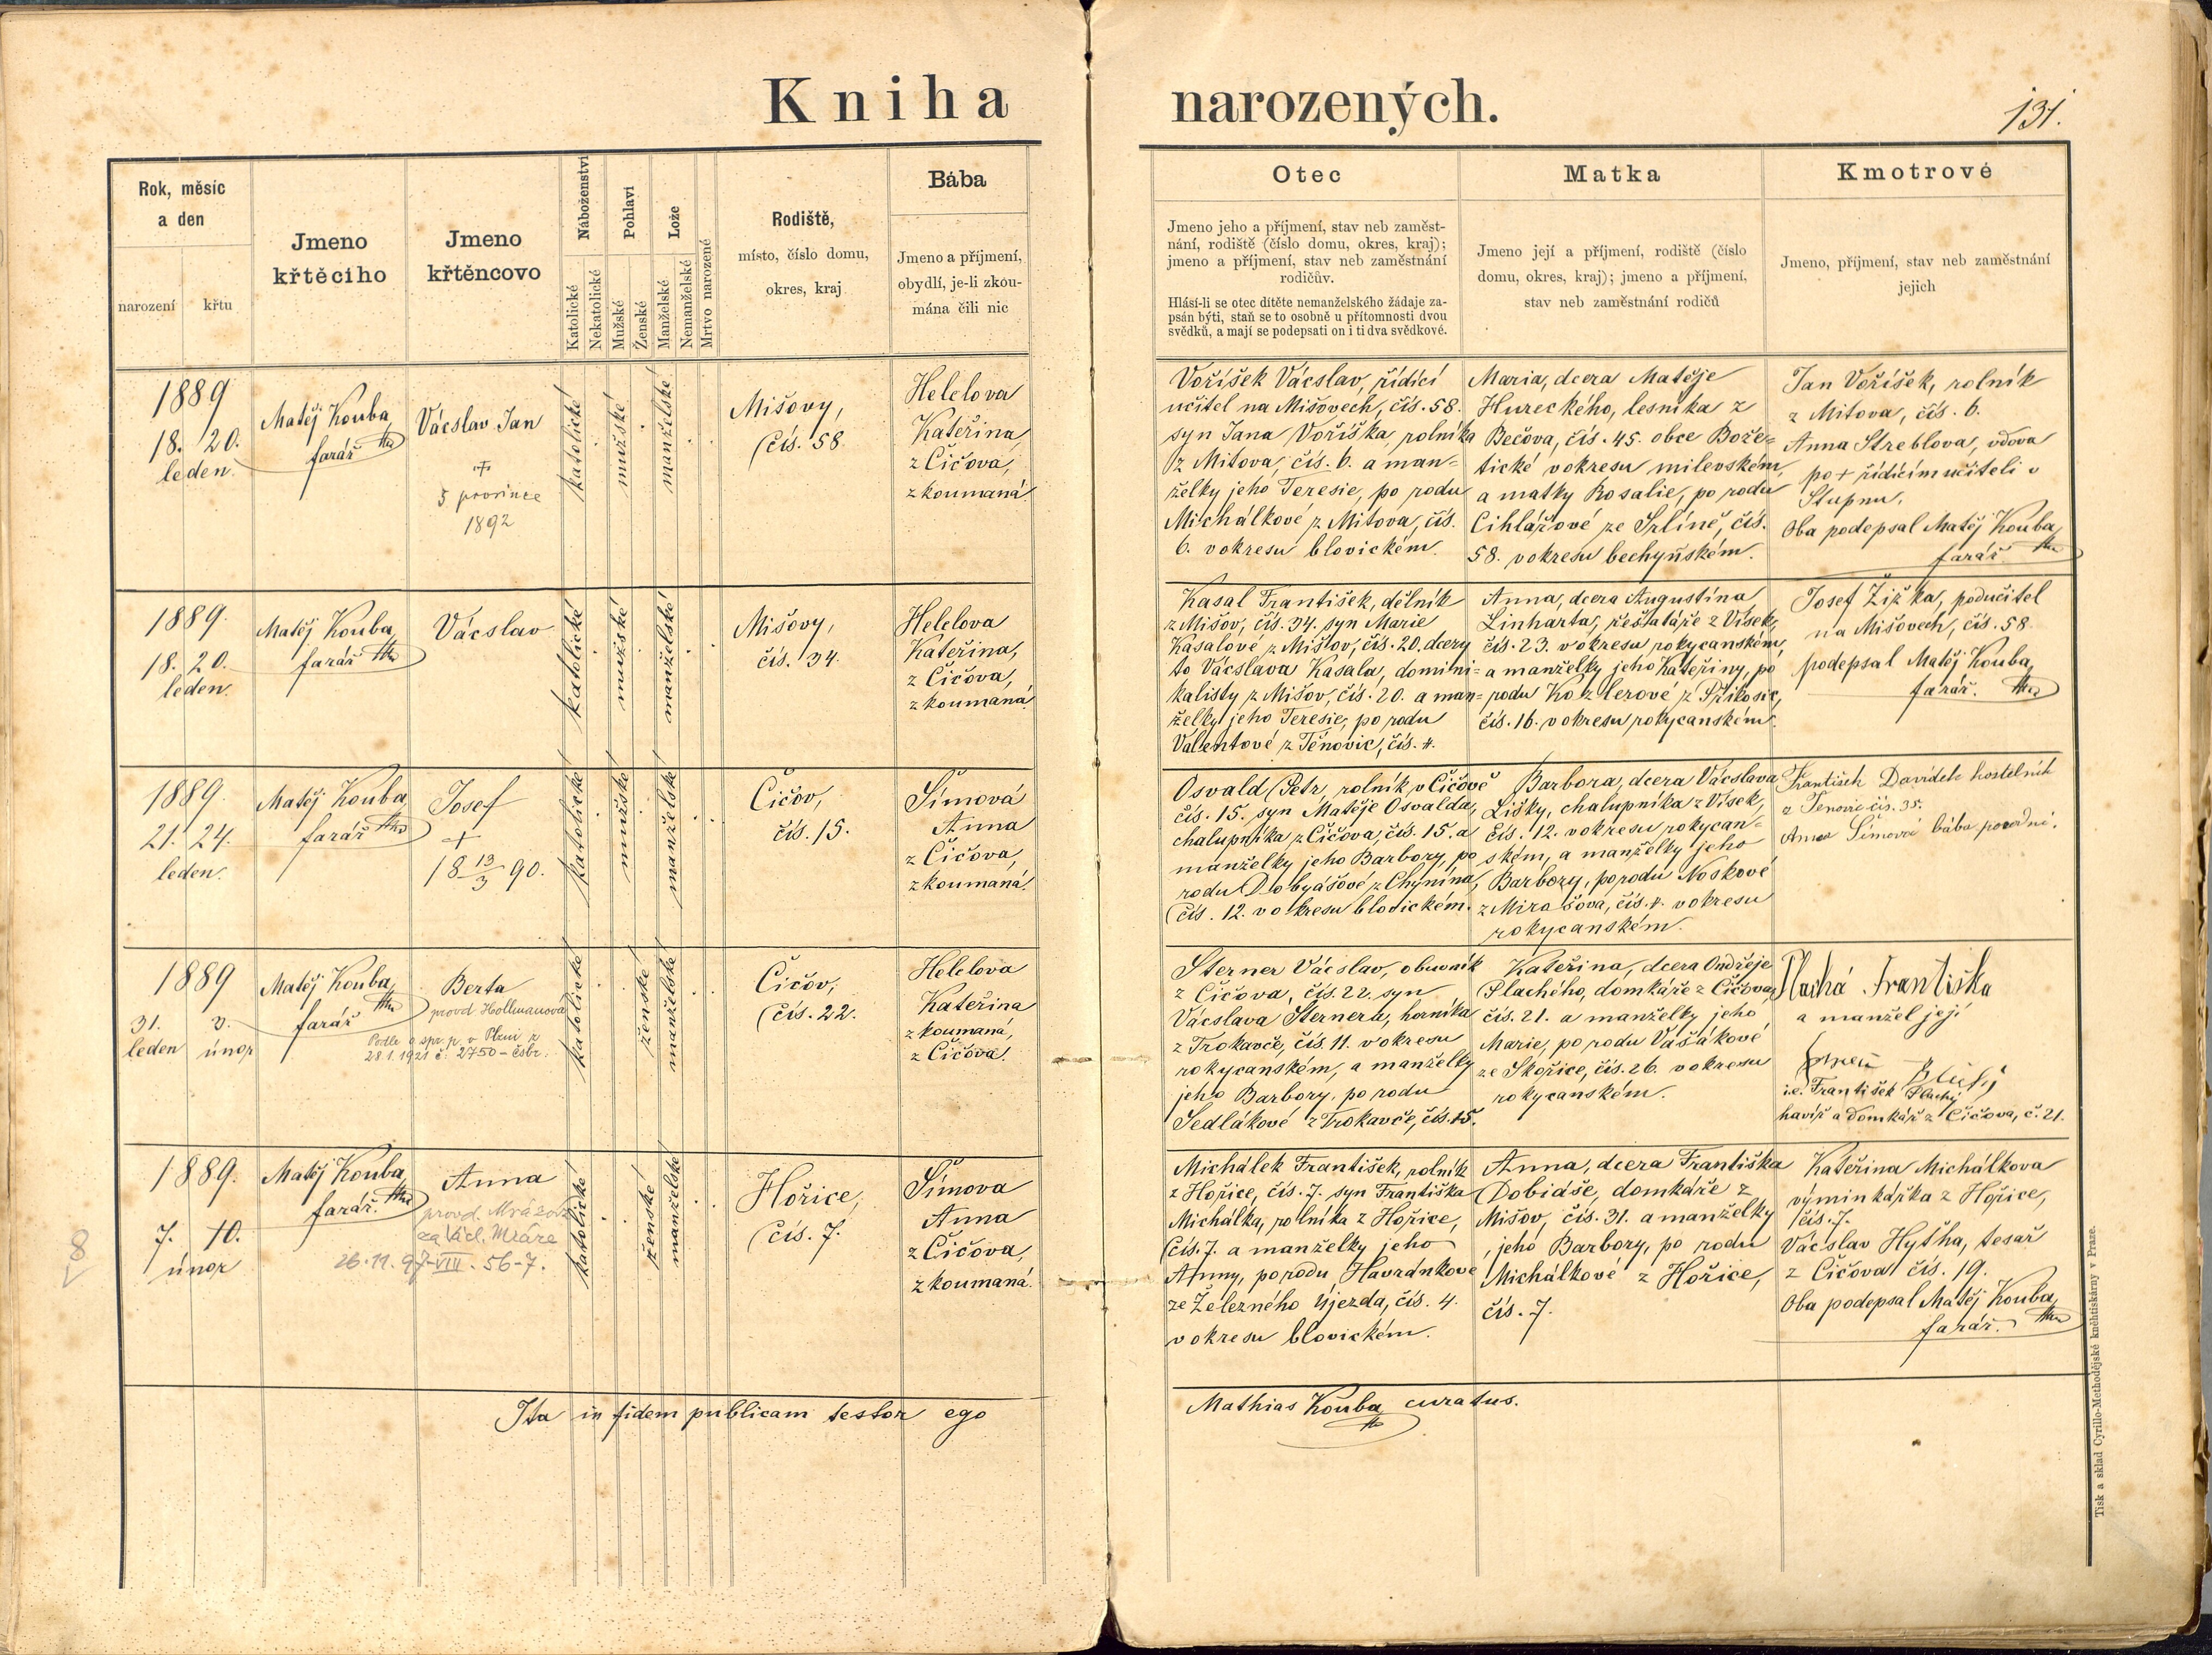 Kniha narozených.
131.
Rok, měsíc
a den
narození
křtu
Jmeno
křtěcího
Jmeno
křtěncovo
Náboženství
Katolické
Nekatolické
Pohlaví
Mužské
Ženské
Lože
Manželské
Nemanželské
Mrtvo narozené
Rodiště,
místo, číslo domu,
okres, kraj
Bába
Jmeno a příjmení,
obydlí, je-li zkou-
mána čili nic
Otec
Jmeno jeho a příjmení, stav neb zaměst-
nání, rodiště (číslo domu, okres, kraj);
jmeno a příjmení, stav neb zaměstnání
rodičův.
Hlásí-li se otec dítěte nemanželského žádaje za-
psán býti, staň se to osobně u přítomnosti dvou
svědků, a mají se podepsati on i ti dva svědkové.
Matka
Jmeno její a příjmení, rodiště (číslo
domu, okres, kraj); jmeno a příjmení,
stav neb zaměstnání rodičů
Kmotrové
Jmeno, příjmení, stav neb zaměstnání
jejich
1889
18. 20.
leden.
Matěj Kouba
farář
Vácslav Jan
5 prosince
1892
katolické
mužské
manželské
Mišovy,
čís. 58.
Helelova
Kateřina,
z Čičova,
zkoumaná.
Voříšek Vácslav, řídící
učitel na Mišovech, čís. 58.
syn Jana Voříška, rolníka
z Mitova, čís. 6. a man-
želky jeho Teresie, po rodu
Michálkové z Mitova, čís.
6. v okresu blovickém.
Maria, dcera Matěje
Hureckého, lesníka z
Bečova, čís. 45. obce Bože-
tické v okresu milevském,
a matky Rosalie, po rodu
Cihlářové ze Srlíně, čís.
58. v okresu bechyňském.
Jan Voříšek, rolník
z Mitova, čís. 6.
Anna Streblova, vdova
po + řídícím učiteli v
Stupnu.
Oba podepsal Matěj Kouba
farář.
1889.
18. 20.
leden.
Matěj Kouba,
farář
Vácslav
katolické
mužské
manželské
Mišovy,
čís. 34.
Helelova
Kateřina,
z Čičova,
zkoumaná.
Kasal František, dělník
z Mišov, čís. 34. syn Marie
Kasalové z Mišov, čís. 20. dcery
to Vácslava Kasala, domini-
kalisty z Mišov, čís. 20. a man-
želky jeho Teresie, po rodu
Valentové z Těnovic, čís. 4.
Anna, dcera Augustina
Linharta, řešetáře z Vísek,
čís. 23. v okresu rokycanském,
a manželky jeho Kateřiny, po
rodu Kozlerové z Příkosic,
čís. 16. v okresu rokycanském.
Josef Žižka, podučitel
na Mišovech, čís. 58.
podepsal Matěj Kouba,
farář.
1889.
21. 24.
leden.
Matěj Kouba
farář
Josef
+
18 13/3 90.
katolické
mužské
manželské
Čičov,
čís. 15.
Šímová
Anna
z Čičova,
zkoumaná.
Osvald Petr, rolník v Čičově
čís. 15. syn Matěje Osvalda,
chalupníka z Čičova, čís. 15. a
manželky jeho Barbory, po
rodu Dobyášové z Chynína,
čís. 12. v okresu blovickém.
Barbora, dcera Vácslava
Lišky, chalupníka z Vísek,
čís. 12. v okresu rokycan-
ském, a manželky jeho
Barbory, po rodu Noskové
z Mirošova, čís. 4. v okresu
rokycanském.
František Davídek kostelník
z Tenovic čís. 35.
Anna Šímová bába porodní.
1889
31. 3.
leden únor
Matěj Kouba,
farář
Berta
provd. Hollmanová
Podle o spr. p. v Plzni z
28.1.1921 č. 2750 - čsbr.
katolické
ženské
manželské
Čičov,
čís. 22.
Helelova
Kateřina
zkoumaná,
z Čičova.
Sterner Vácslav, obuvník
z Čičova, čís. 22. syn
Vácslava Sternera, horníka
z Trokavče, čís. 11. v okresu
rokycanském, a manželky
jeho Barbory, po rodu
Sedlákové z Trokavče, čís. 15.
Kateřina, dcera Ondřeje
Plachého, domkáře z Čičova,
čís. 21. a manželky jeho
Marie, po rodu Vašákové
ze Skořice, čís. 26. v okresu
rokycanském.
Plachá Františka
a manžel její
i.e. František Plachý
havíř a domkář z Čičova, č. 21.
8
1889.
7. 10.
únor
Matěj Kouba,
farář.
Anna
provd. Mrázová
za Václ. Mráze
26.11.97-VIII. 56-7.
katolické
ženské
manželské
Hořice,
čís. 7.
Šímova
Anna
z Čičova,
zkoumaná.
Michálek František, rolník
z Hořice, čís. 7. syn Františka
Michálka, rolníka z Hořice,
čís. 7. a manželky jeho
Anny, po rodu Havránkové
ze Železného Újezda, čís. 4.
v okresu blovickém.
Anna, dcera Františka
Dobiáše, domkáře z
Mišov, čís. 31. a manželky
jeho Barbory, po rodu
Michálkové z Hořice,
čís. 7.
Kateřina Michálkova
výminkářka z Hořice,
čís. 7.
Vácslav Hytha, tesař
z Čičova čís. 19.
Oba podepsal Matěj Kouba,
farář.
Ita in fidem publicam testor ego Mathias Kouba curatus.
Tisk a sklad Cyrillo-Methodějské kněhtiskárny v Praze.